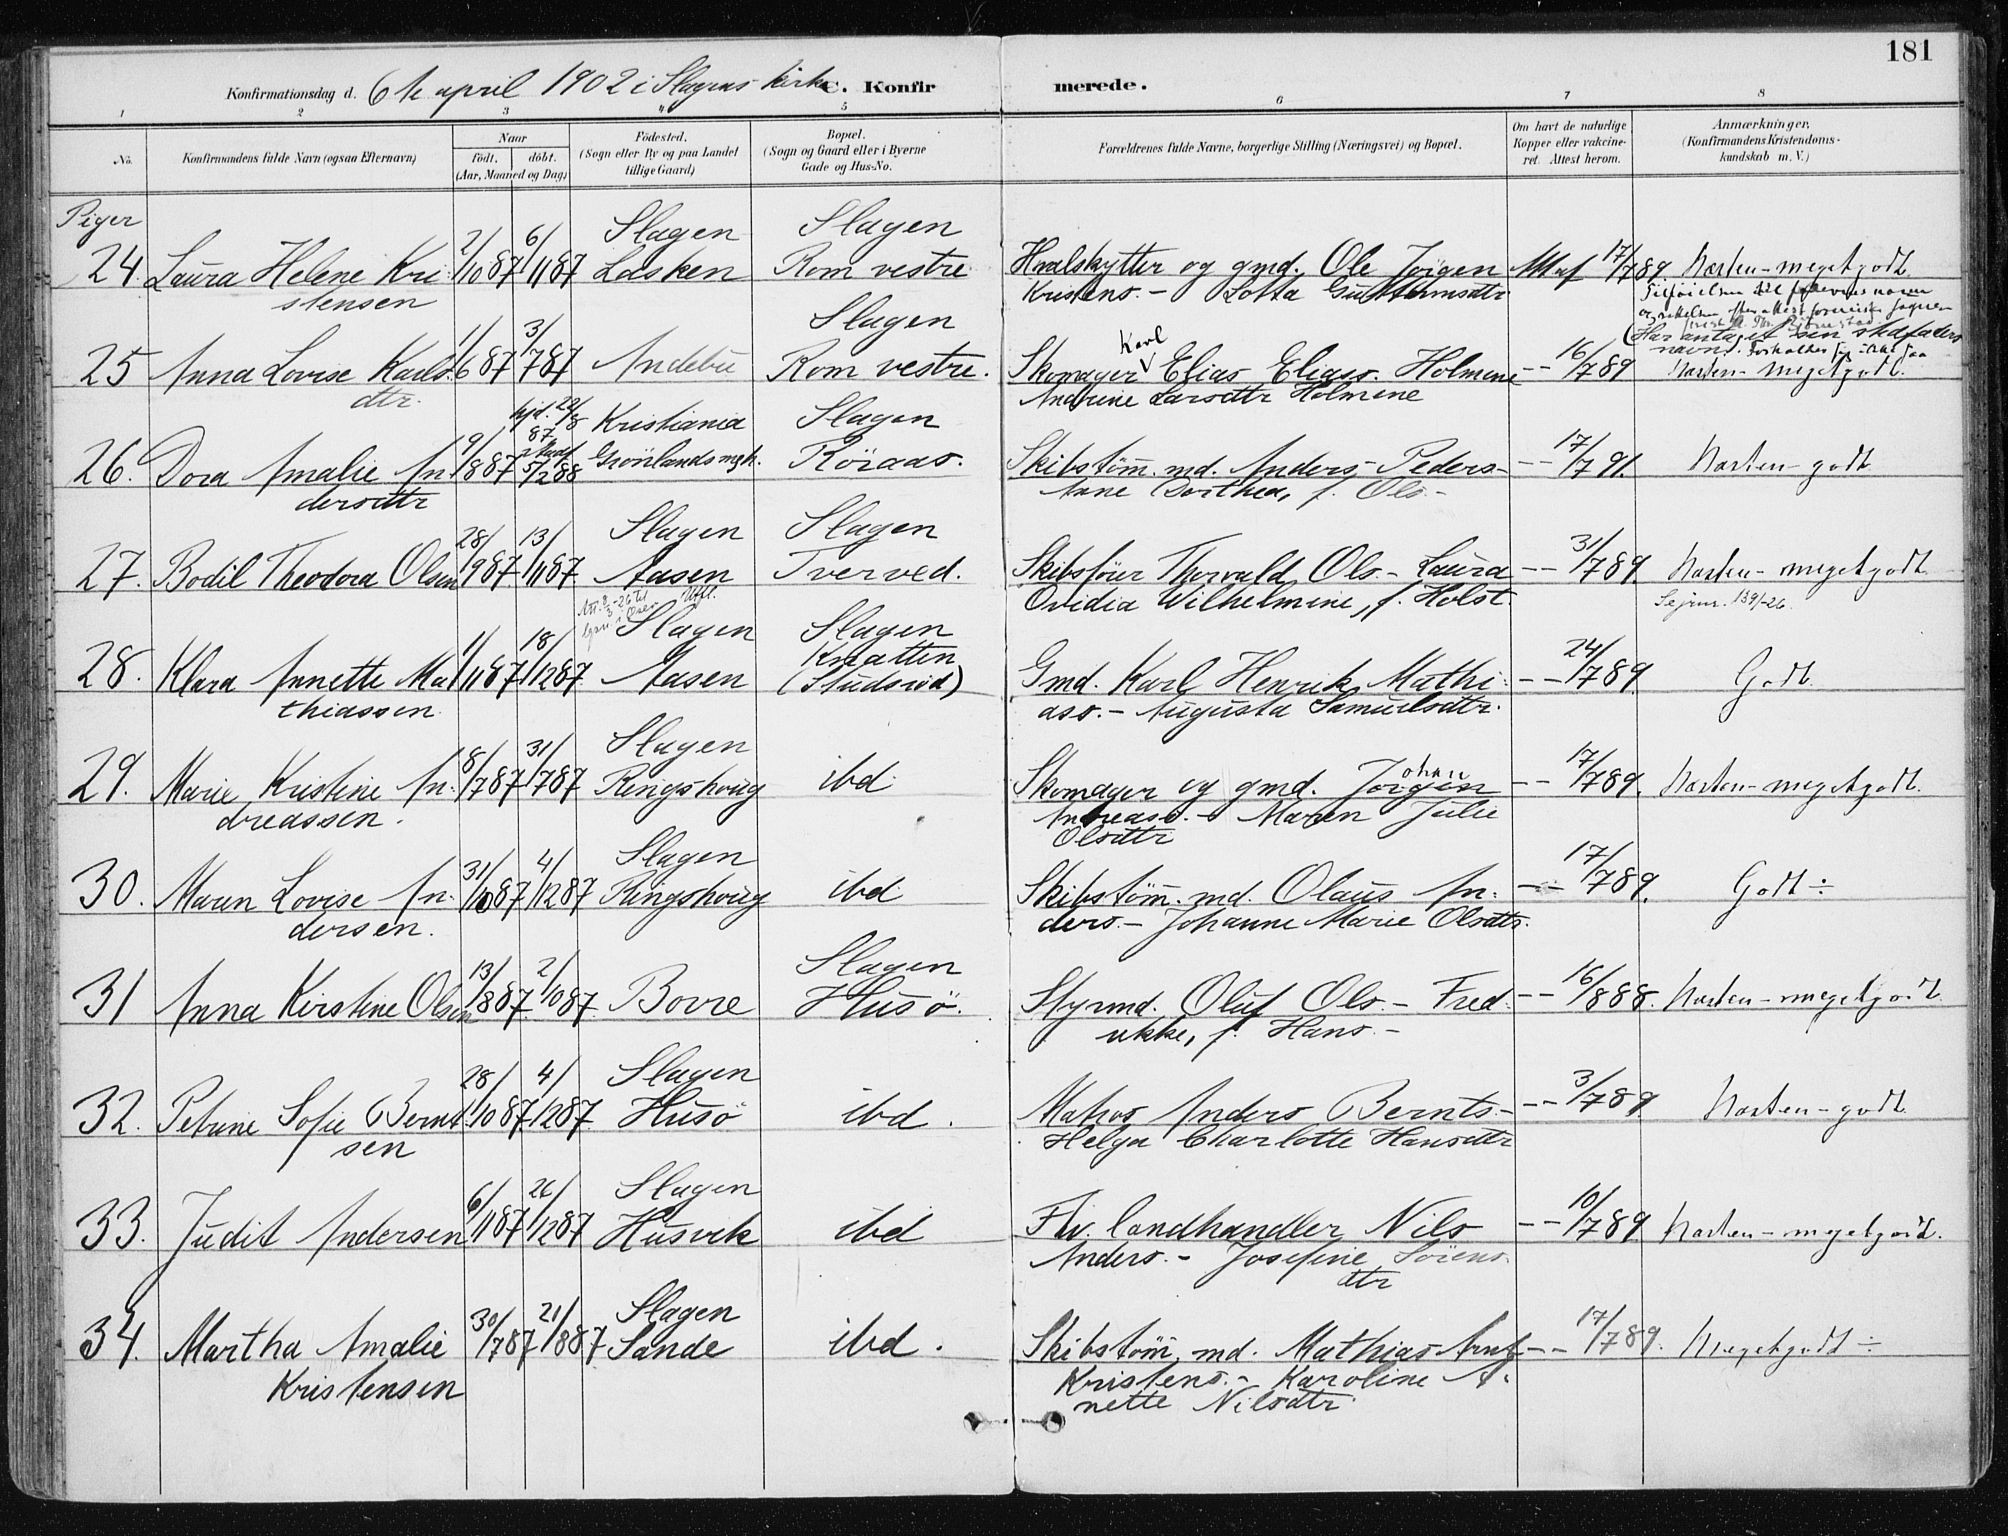 181
Konfirmationsdag d. 6te april 1902 i Slagens kirke C. Konfirmerede.
1 2 3 4 5 6 7 8
No. Konfirmandens fulde Navn (ogsaa Efternavn) Naar født. døbt. (Aar, Maaned og Dag) Fødested. (Sogn eller By og paa Landet tillige Gaard) Bopæl. (Sogn og Gaard eller i Byerne Gade og Hus-No. Forældrenes fulde Navne, borgerlige Stilling (Næringsvei) og Bopæl. Om havt de naturlige Kopper eller vakcineret. Attest herom. Anmærkninger. (Konfirmandens Kristendomskundskab m. V.)
Piger
Slagen Slagen
24. Laura Helene Kri- 2/10 87 6/11 87 Løsken Rom vestre Hvalskytter og gmd. Ole Jørgen 17/7 89 Næsten-megetgodt
stensen Kristens. - Lotta
Slagen
(Har antaget sin stedfaders navn.
25 Anna Lovise Karls- 1/6 87 3/7 87 Andebu Rom vestre. Skomager Karl Elias Eliass. Holmene -- 16/7 89 Næsten-Megetgodt.
dtr. Andrine Larsdtr Holmene
hjd. 22/8 87 Kristiania Slagen
26. Dora Amalie An- 9/8 87 5/2 88 Grønlands mgh. Røraas. Skibstøm.md. Anders Peders- -- 17/7 91. Næsten-godt
dersdtr Anne Dorthea, f. Ols.-
Slagen Slagen
27. Bodil Theodora Olsen 28/9 87 13/11 87 Aasen Tverved. Skibsfører Thorvald Ols.- Laura -- 31/7 89 Næsten-megetgodt
Ovidia Wilhelmine, f. Holst. 139/-26.
Slagen Slagen
Knatten
28. Klara Annette Ma- 1/11 87 18/12 87 Aasen (Studsrød) Gmd. Karl Henrik Mathi- -- 24/7 89 Godt.
thiassen ass.- Augusta Samuelsdtr.
Slagen
29. Marie Kristine An- 8/7 87 31/7 87 Ringshoug ibd Skomager og gmd. Johan Jørgen -- 17/7 89. Næsten-megetgodt.
dreassen. Andreass.- Maren Julie
Olsdtr
Slagen
30. Maren Lovise An- 31/10 87 4/12 87 Ringshoug ibd Skibstøm.md. Olaus An- -- 17/7 89. Godt ÷
dersen. ders.- Johanne Marie Olsdtr.
Slagen
31 Anna Kirstine Olsen 13/8 87 2/10 87 Borre Husø. Styrmd. Oluf Ols.- Fred- -- 16/8 88. Næsten-megetgodt
rikke, f. Hans.-
Slagen
32. Petrine Sofie Bernt- 28/10 87 4/12 87 Husø ibd. Matros Anders Bernts.- -- 3/7 89 Næsten-godt
sen Helga Charlotte Hansdtr
Slagen
33. Judit Andersen 6/11 87 26/12 87 Husvik ibd Fhv. landhandler Nils -- 10/7 89 Næsten-megetgodt.
Anders.- Josefine Sørens-
dtr
Slagen
34. Martha Amalie 30/7 87 21/8 87 Sande ibd. Skibstøm.md. Mathias Arnt -- 17/7 89. Megetgodt ÷
Kristensen Kristens.- Karoline A-
nette Nilsdtr.